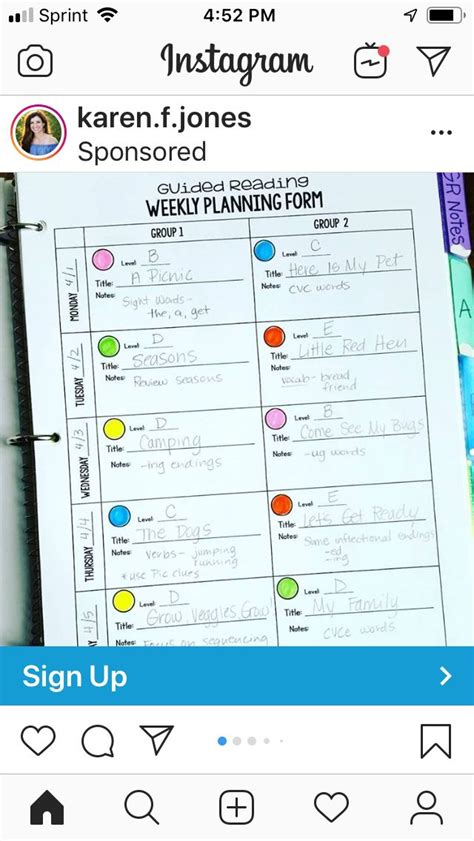 Sprint 4:52 PM
Instagram
karen.f.jones
Sponsored
GR Notes
Guided Reading
WEEKLY PLANNING FORM
GROUP 1 GROUP 2
MONDAY 4/1
Level: B
Title: A Picnic
Notes: Sight Words -
the, a, get
Level: C
Title: Here Is My Pet
Notes: CVC words
TUESDAY 4/2
Level: D
Title: Seasons
Notes: Review seasons
Level: E
Title: Little Red Hen
Notes:
vocab - bread
friend
WEDNESDAY 4/3
Level: D
Title: Camping
Notes: -ing endings
Level: B
Title: Come See My Bugs
Notes: -ug words
THURSDAY 4/4
Level: C
Title: The Dogs
Notes: Verbs - jumping
running
* use Pic clues
Level: E
Title: Let's Get Ready
Notes: Some inflectional endings
-ed
-ing
AY 4/5
Level: D
Title: Grow, Veggies, Grow
Notes: Focus on sequencing
Level: D
Title: My Family
Notes: CVCe words
A
Sign Up